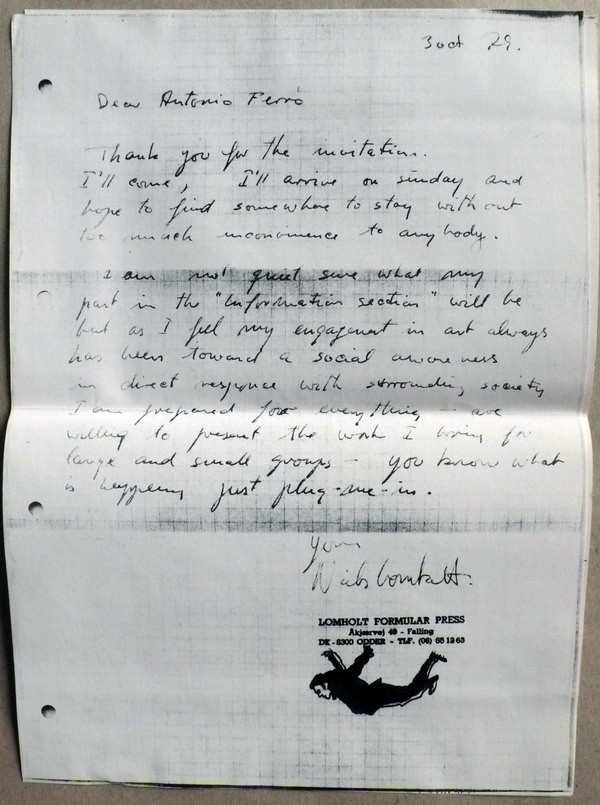 3 oct 79.
Dear Antonio Ferró
Thank you for the invitation.
I'll come, I'll arrive on sunday and
hope to find somewhere to stay without
too much inconvinence to anybody.
I am not quiet sure what my
part in the "information section" will be
but as I feel my engagement in art always
has been toward a social awareness
in direct response with surrounding society
I am prepared for everything - are
willing to present the work I bring for
large and small groups - you know what
is happening just plug-me-in.
Yours
Niels Lomholt.
LOMHOLT FORMULAR PRESS
Åkjærvej 49 - Falling
DK-8300 ODDER - TLF. (06) 55 12 63